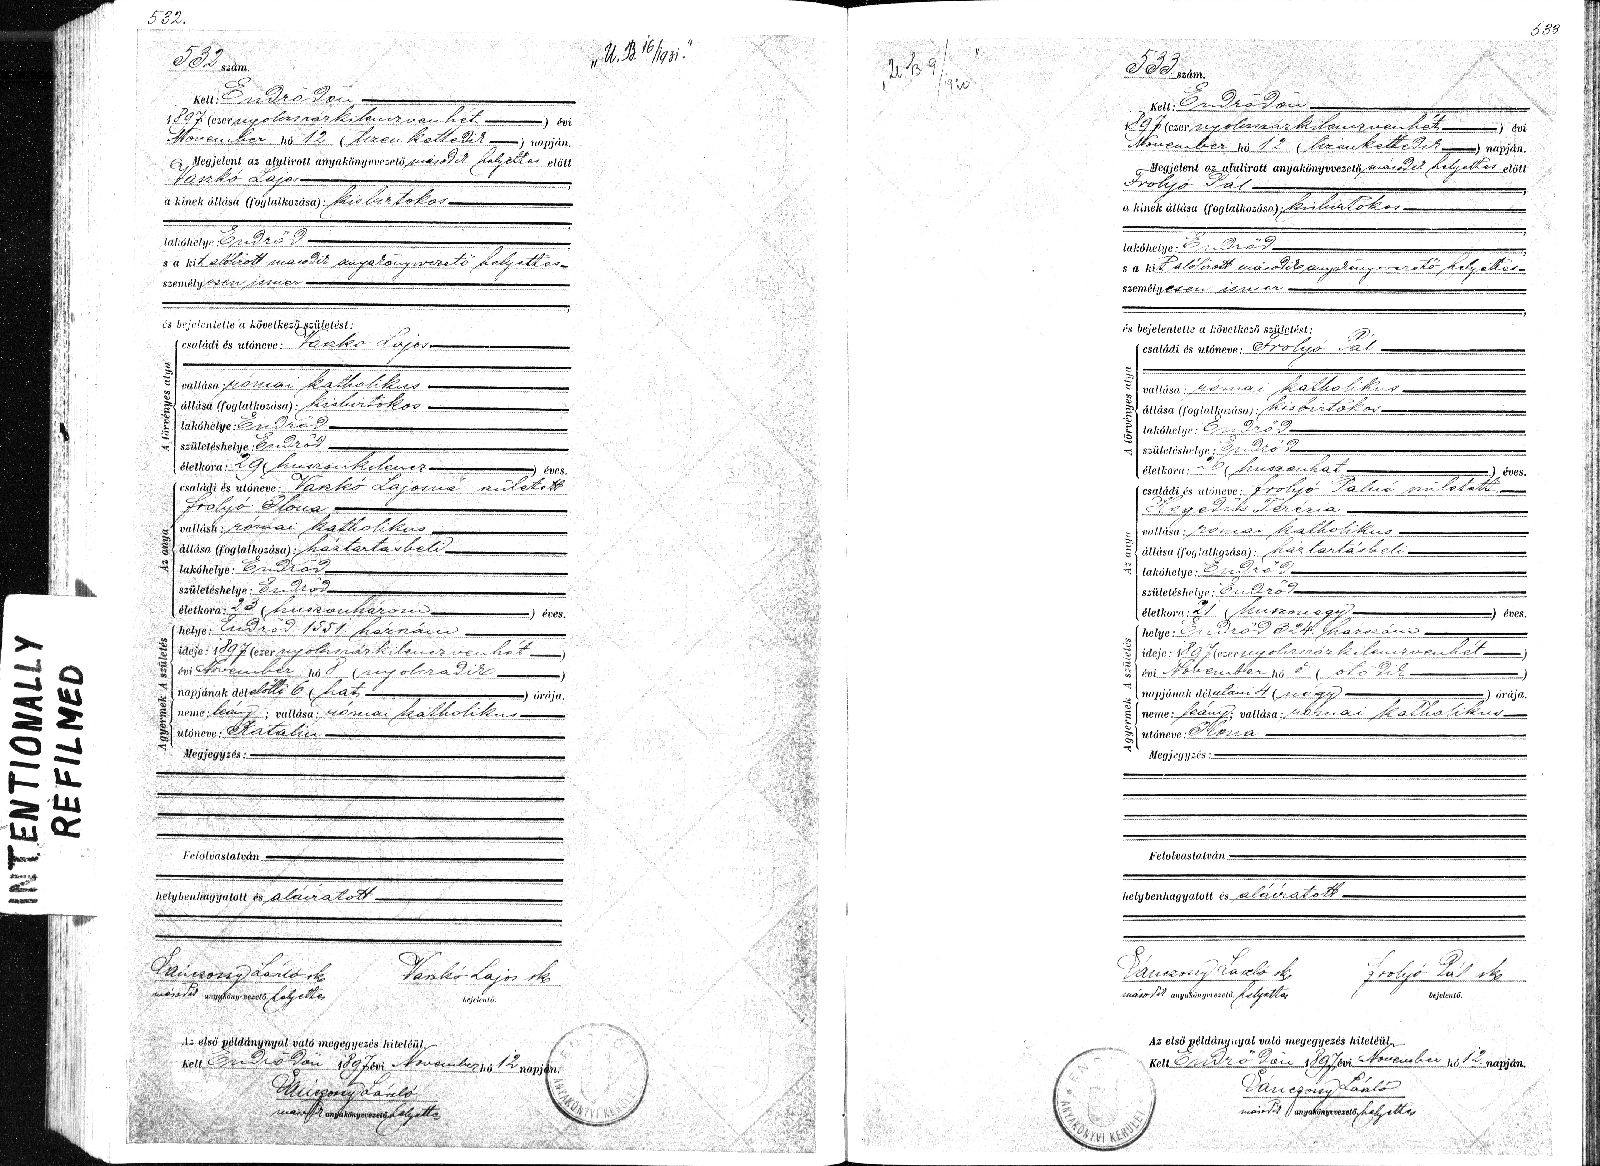 532.
532 szám.
„U. B. 16/1931."
Kelt: Endrődön
1897 (ezer nyolcszázkilenczvenhét) évi
November hó 12 (tizenkettedik) napján.
Megjelent az alulirott anyakönyvvezető második helyettes előtt
Vaszkó Lajos
a kinek állása (foglalkozása): kisbirtokos
lakóhelye: Endrőd
s a kit alólirott második anyakönyvvezető helyettes
személyesen ismer
és bejelentette a következő születést:
A törvényes atya
családi és utóneve: Vaszkó Lajos
vallása: római katholikus
állása (foglalkozása): kisbirtokos
lakóhelye: Endrőd
születéshelye: Endrőd
életkora: 29 (huszonkilencz) éves.
Az anya
családi és utóneve: Vaszkó Lajosné született
Frolyó Ilona
vallása: római katholikus
állása (foglalkozása): háztartásbeli
lakóhelye: Endrőd
születéshelye: Endrőd
életkora: 23 (huszonhárom) éves.
A gyermek A születés
helye: Endrőd 1551 házszám
ideje: 1897 (ezer nyolcszázkilenczvenhét)
évi November hó 8 (nyolczadik)
napjának délelőtti 6 (hat) órája.
neme: leány; vallása: római katholikus
utóneve: Katalin
Megjegyzés:
Felolvastatván
helybenhagyatott és aláiratott
László sk Vaszkó Lajos sk
második anyakönyvvezető helyettes bejelentő.
Az első példánynyal való megegyezés hiteléül,
Kelt Endrődön 1897 évi November hó 12 napján.
László
második anyakönyvvezető helyettes
ANYAKÖNYVI KERÜLET
INTENTIONALLY
REFILMED
533
„U B 9/1920"
533 szám.
Kelt: Endrődön
1897 (ezer nyolcszázkilenczvenhét) évi
November hó 12 (tizenkettedik) napján.
Megjelent az alulirott anyakönyvvezető második helyettes előtt
Frolyó Pál
a kinek állása (foglalkozása): kisbirtokos
lakóhelye: Endrőd
s a kit alólirott második anyakönyvvezető helyettes
személyesen ismer
és bejelentette a következő születést:
A törvényes atya
családi és utóneve: Frolyó Pál
vallása: római katholikus
állása (foglalkozása): kisbirtokos
lakóhelye: Endrőd
születéshelye: Endrőd
életkora: 26 (huszonhat) éves.
Az anya
családi és utóneve: Frolyó Pálné született
Hegedűs Terézia
vallása: római katholikus
állása (foglalkozása): háztartásbeli
lakóhelye: Endrőd
születéshelye: Endrőd
életkora: 21 (huszonegy) éves.
A gyermek A születés
helye: Endrőd 324 házszám
ideje: 1897 (ezer nyolcszázkilenczvenhét)
évi November hó (ötödik)
napjának délutáni 4 (négy) órája.
neme: leány; vallása: római katholikus
utóneve: Ilona
Megjegyzés:
Felolvastatván
helybenhagyatott és aláiratott
László sk Frolyó Pál sk
második anyakönyvvezető helyettes bejelentő.
Az első példánynyal való megegyezés hiteléül,
Kelt Endrődön 1897 évi November hó 12 napján.
László
második anyakönyvvezető helyettes
ANYAKÖNYVI KERÜLET